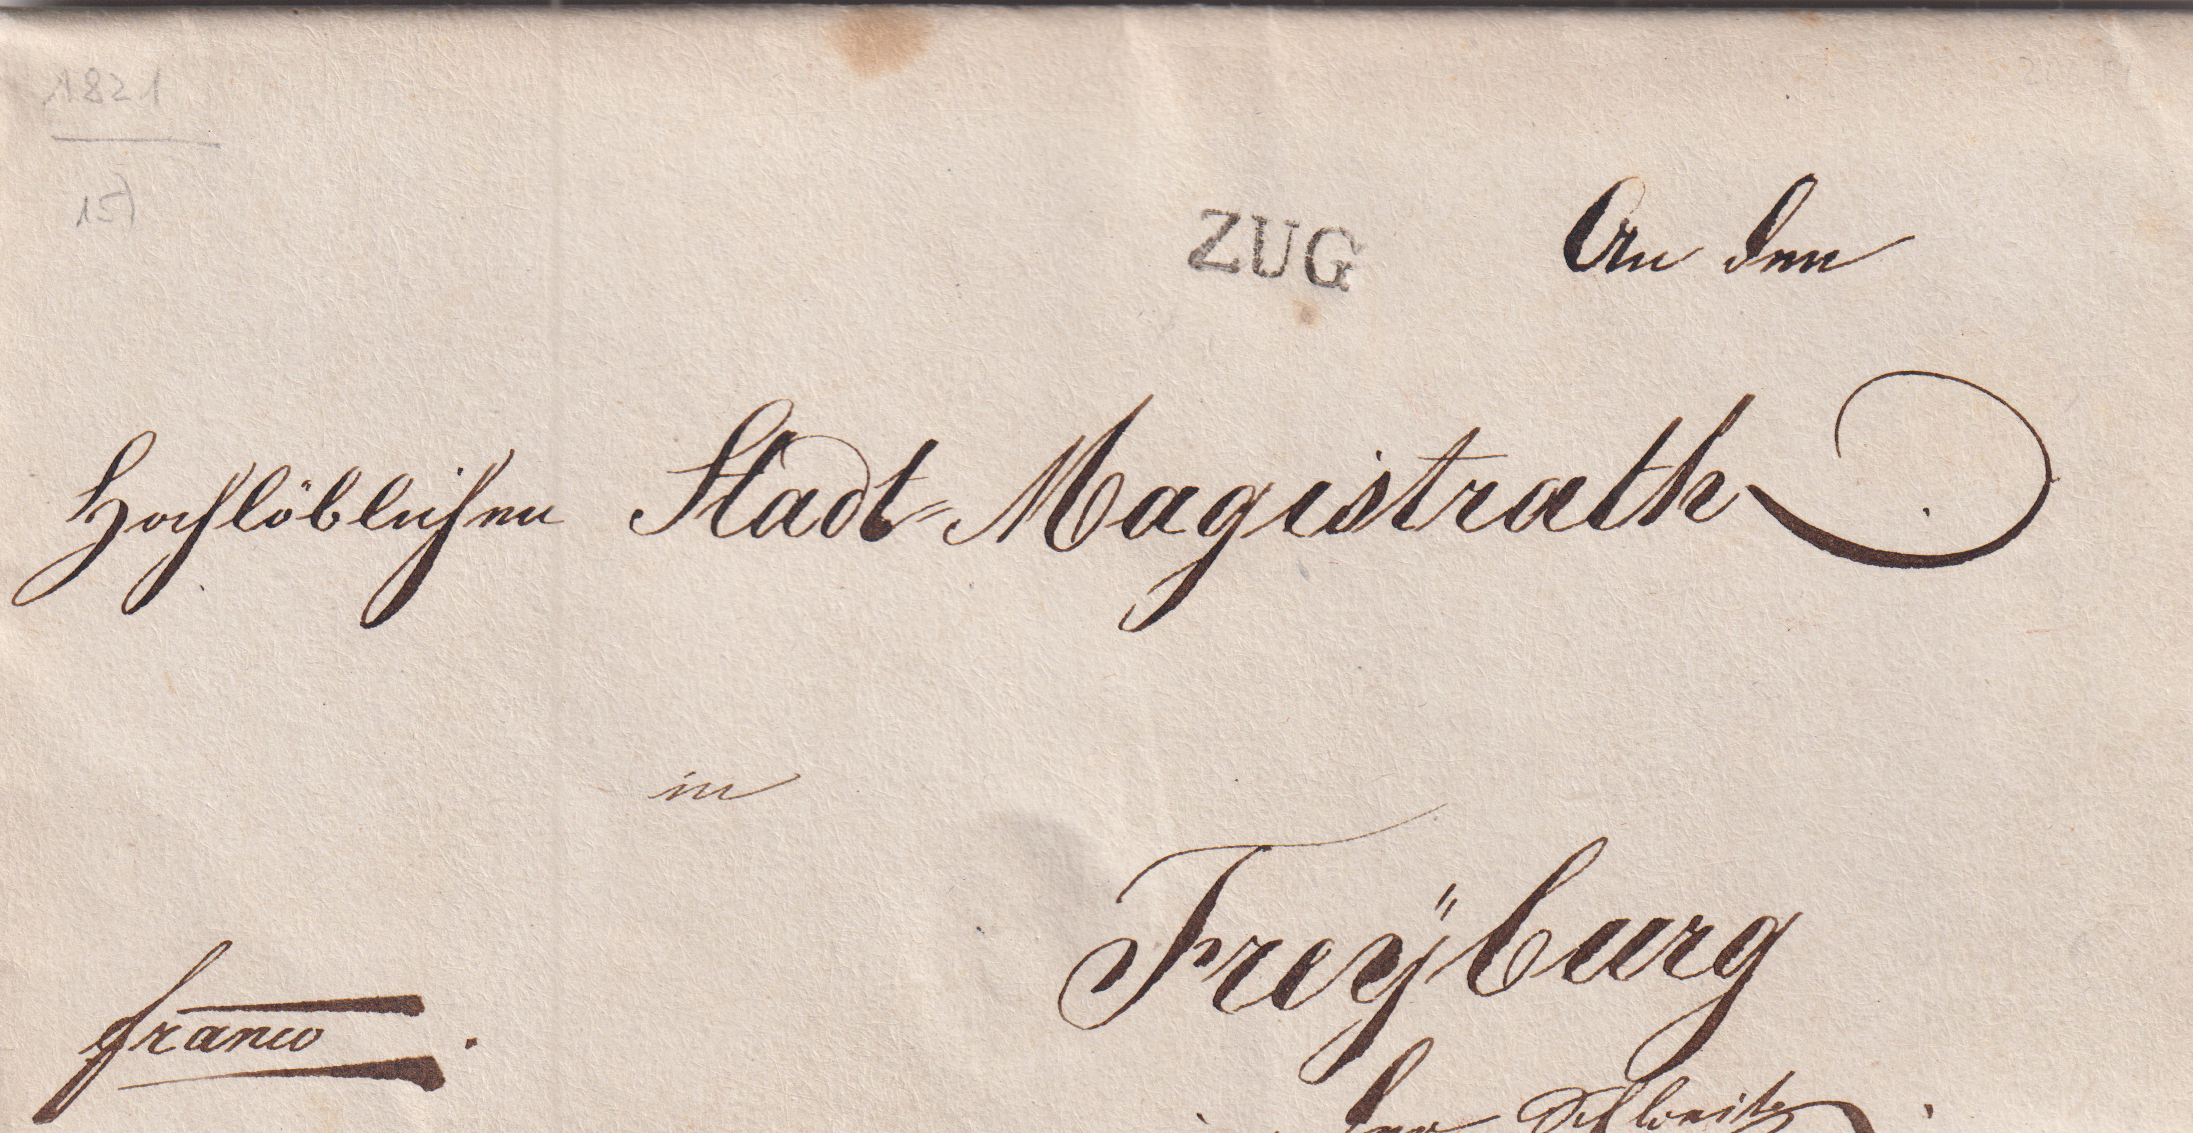 1821
15)
ZUG
An den
Hochlöblichen Stadt-Magistrath
in
Freÿburg
franco.
in der Schweitz.